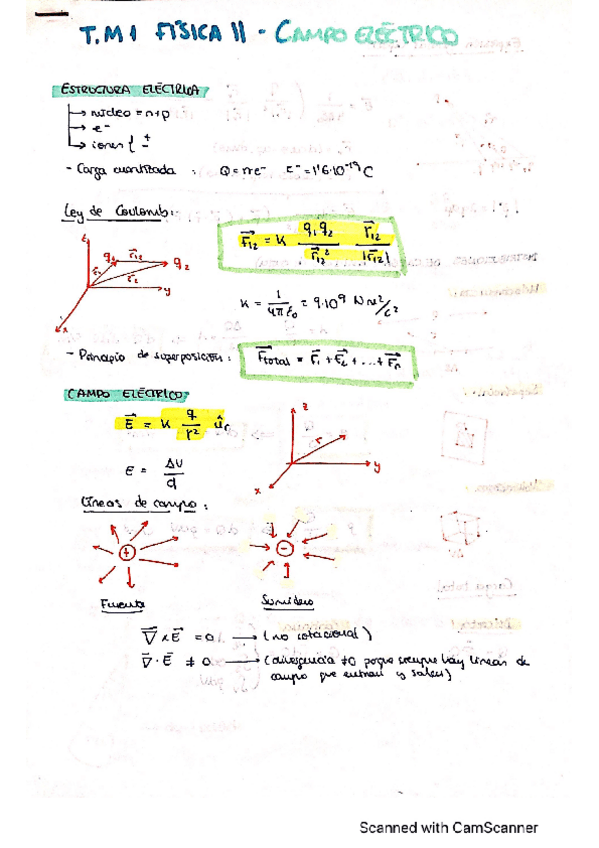 T.M 1 FÍSICA II - CAMPO ELÉCTRICO
ESTRUCTURA ELÉCTRICA
→ núcleo = n+p
→ e⁻
→ iones { + -
- Carga cuantizada : Q = n·e⁻ e⁻ = 1'6·10⁻¹⁹ C
Ley de Coulomb:
F₁₂ = K q₁q₂ / r₁₂² r₁₂ / |r₁₂|
z q₁ r₁₂ q₂
r₁ r₂ y
x
K = 1 / 4πε₀ = 9·10⁹ N m²/c²
- Principio de superposición : F total = F₁ + F₂ + ... + Fₙ
CAMPO ELÉCTRICO
E = K q / r² ûr
z
r
y
x
E = ΔV / d
Líneas de campo :
+ -
Fuente Sumidero
∇ × E = 0 → (no rotacional)
∇ · E ≠ 0 → (divergencia ≠0 porque siempre hay líneas de
campo que entran y salen)
Scanned with CamScanner